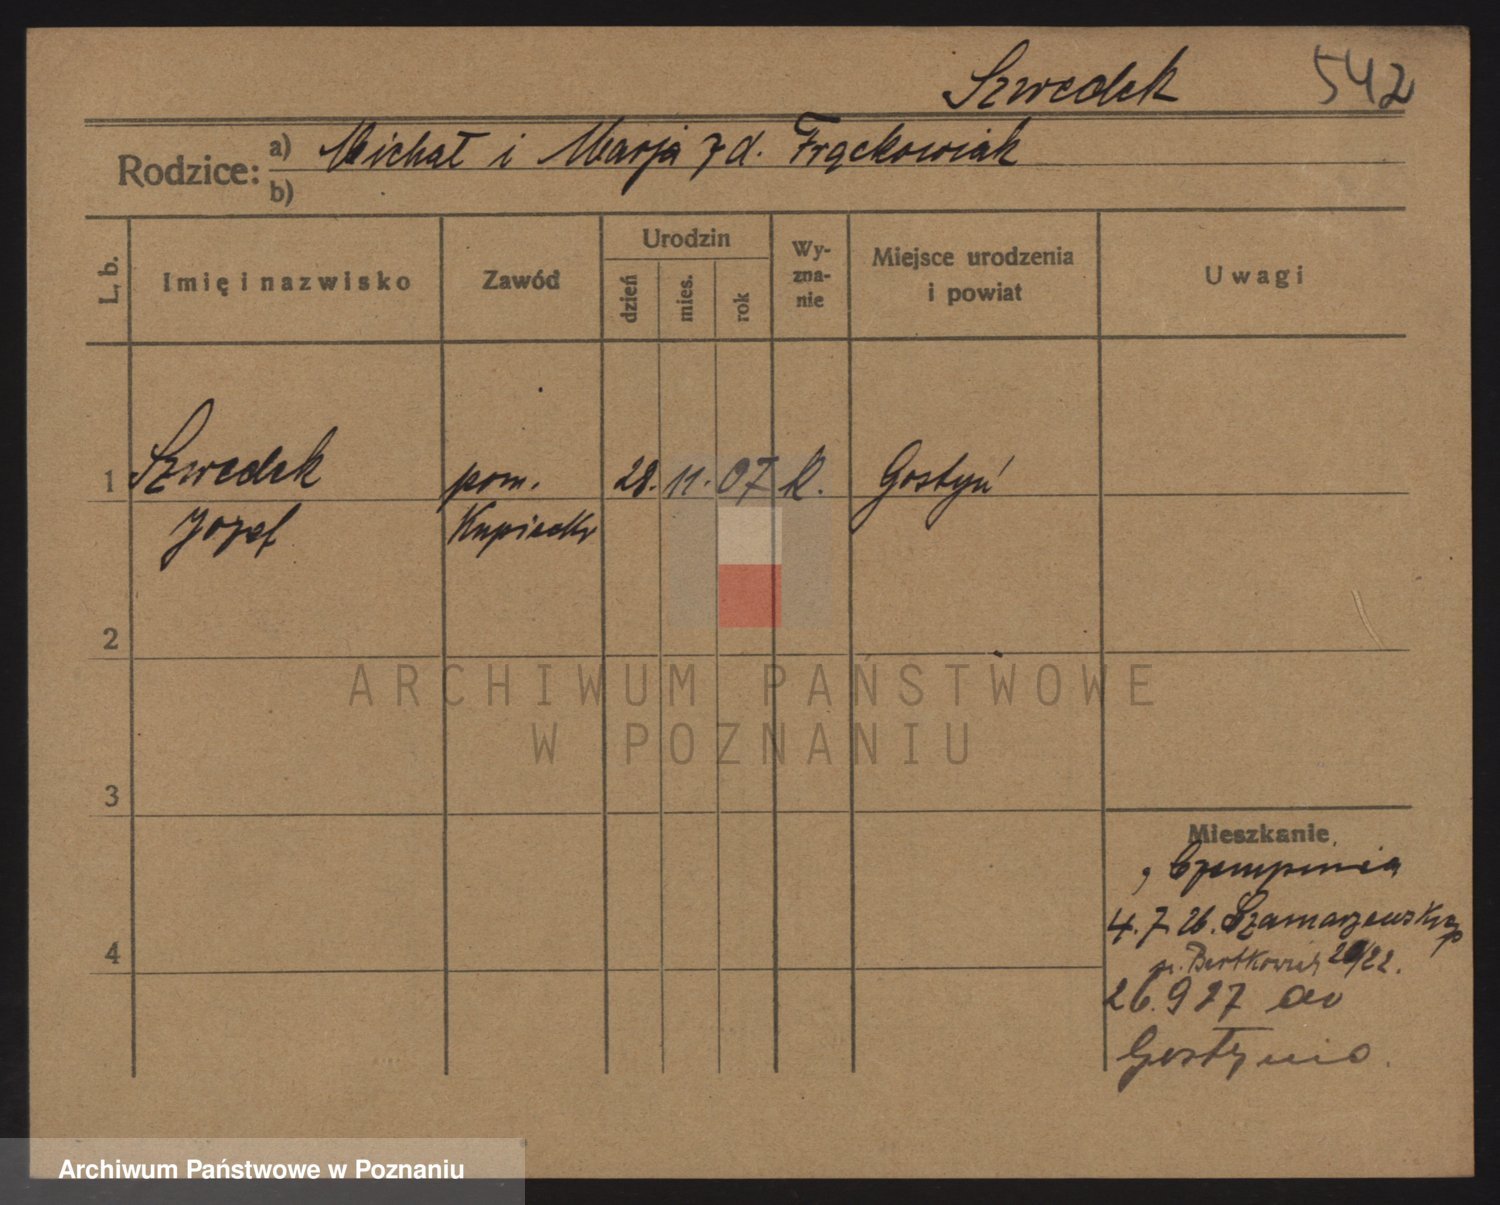 Szwedek 542
Rodzice: a) Michał i Marja z d. Frąckowiak
b)
L. b. Imię i nazwisko Zawód Urodzin dzień mies. rok Wyznanie Miejsce urodzenia i powiat Uwagi
1 Szwedek pom. 28. 11. 07 k. Gostyń
Józef Kupiecki
2
3
4
Mieszkanie
Czempinia
4.7.26. Szamarzewskiego
p. Bartkowiak /22.
26.9 27 do
Gostynia.
ARCHIWUM PAŃSTWOWE
W POZNANIU
Archiwum Państwowe w Poznaniu